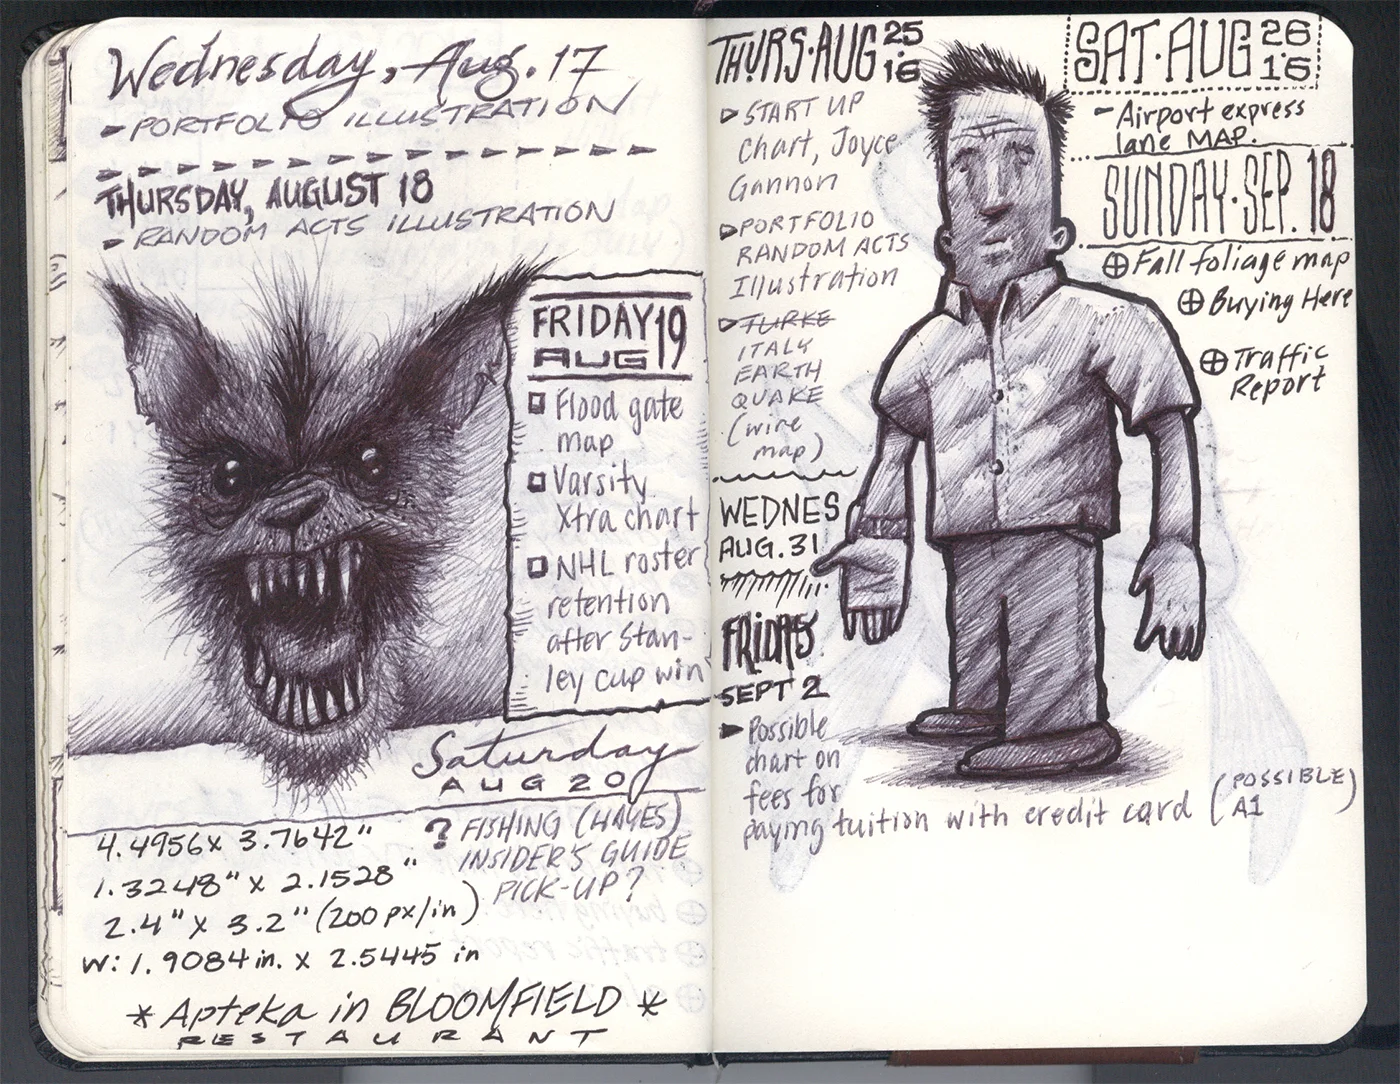 Wednesday, Aug. 17
PORTFOLIO ILLUSTRATION
THURSDAY, AUGUST 18
RANDOM ACTS ILLUSTRATION
FRIDAY 19
AUG
Flood gate
map
Varsity
Xtra chart
NHL roster
retention
after Stan-
ley cup win
Saturday
AUG 20
4.4956 x 3.7642"
1.3248" x 2.1528"
2.4" x 3.2" (200 px/in)
W: 1.9084 in. x 2.5445 in
? FISHING (HAYES)
INSIDER'S GUIDE
PICK-UP?
* Apteka in BLOOMFIELD *
RESTAURANT
THURS·AUG 25
·16
START UP
chart, Joyce
Gannon
PORTFOLIO
RANDOM ACTS
Illustration
TURKE
ITALY
EARTH
QUAKE
(wire
map)
WEDNES
AUG. 31
FRIDAY
SEPT 2
Possible
chart on
fees for
paying tuition with credit card (POSSIBLE)
A1
SAT·AUG 26
·16
Airport express
lane MAP.
SUNDAY·SEP. 18
Fall foliage map
Buying Here
Traffic
Report